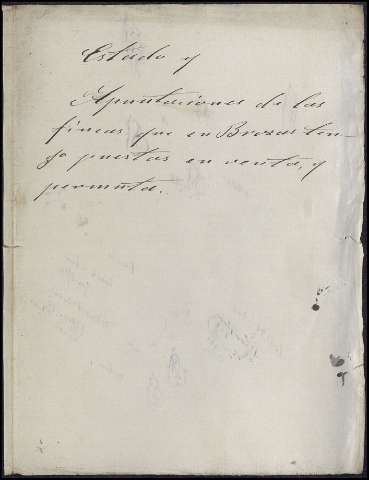 Estado y
Apuntaciones de las
fincas que en Brozas ten-
go puestas en venta, y
permuta.